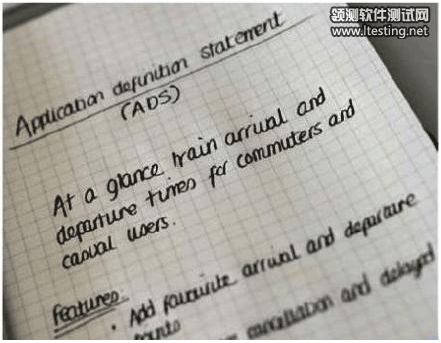 领测软件测试网
www.ltesting.net
Application definition statement
(ADS)
At a glance train arrival and
departure times for commuters and
casual users.
Features:
• Add favourite arrival and departure
points
cancellation and delayed